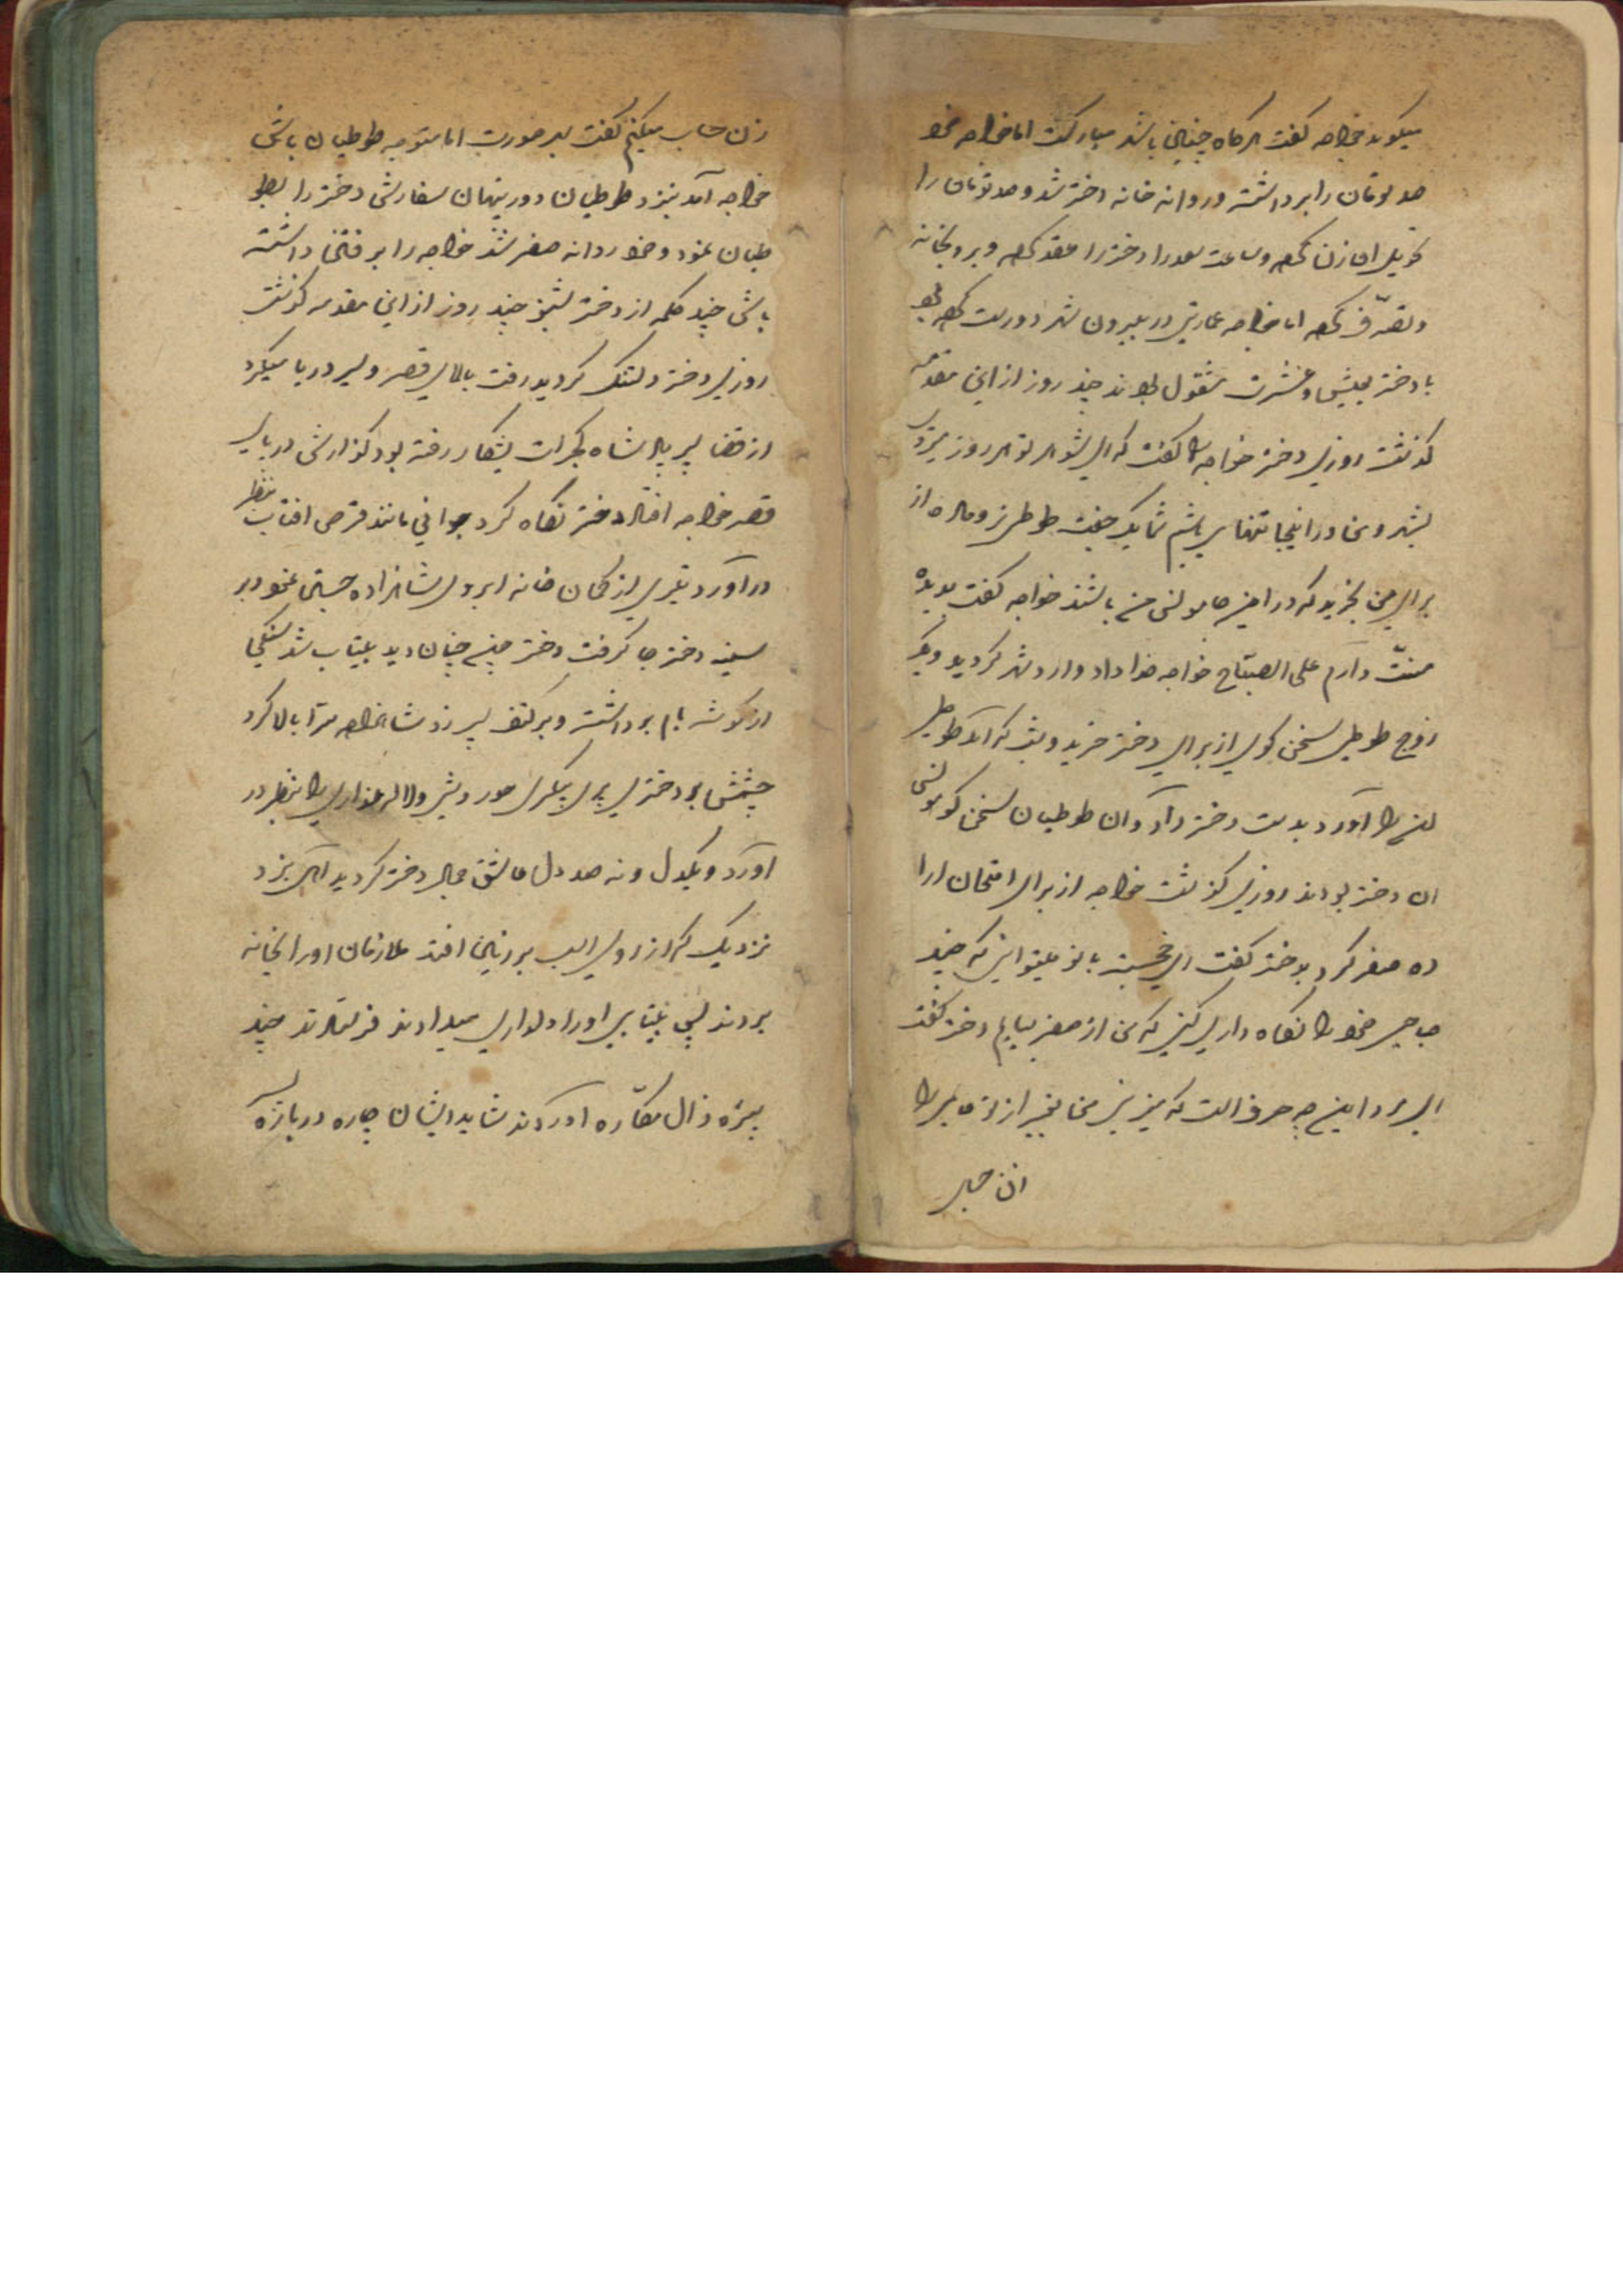 میکوید خواجه کفت هرکاه چنین باشد مبارکست اما خواجه خود
صد تومان را برداشته و روانه خانه دختر شد و صد تومان را
تحویل ان زن کرد و ساعت سعد را دختر را عقد کرد و برد بخانه
و تصرّف کرد اما خواجه عمارتی در بیرون شهر دورست کرده بود
با دختر بعیش و عشرت مشقول بودند چند روز از این مقدمه
کذشت روزی دختر خواجه را کفت که ای شوهر تو هر روز میروی
بشهر و من در اینجا تنها می باشم شما یک جفت طوطی نر و ماده از
برای من بخرید که در اینجا مونس من باشند خواجه کفت بدیده
منّت دارم علی الصبّاح خواجه داد وارد شهر کردید و یک
زوج طوطی سخن کوی از برای دختر خرید و شب که آمد طوطی
را آورد بدست دختر داد و آن طوطیان سخن کو مونس
ان دختر بودند روزی کذشت خواجه از برای امتحان اراده
ده سفر کرد بدختر کفت ای بانو میتوانی که چند
صباحی خود را نکاه داری کنی که من از سفر بیایم دختر کفت
ای مرد این چه حرف است که میزنی من بغیر از تو مردی را
ان جای
زن حساب میکنم کفت بهر صورت اما متوجه طوطیان باش
خواجه آمد بنزد طوطیان و در پنهان سفارش دختر را بطو
طیان نمود و خود روانه سفر شد خواجه را بر فتن داشته
باش چند کلمه از دختر بشنو چند روز از این مقدمه کذشت
روزی دختر دلتنک کردید رفت بالای قصر و سیر دریا میکرد
از قضا پسر پادشاه کجرات بشکار رفته بود کذارش در پای
قصر خواجه افتاد دختر نکاه کرد جوانی مانند قرص افتاب بنظر
درآورد تیری از کمان خانه ابروی شاهزاده جستن نمود بر
سینه دختر جا کرفت دختر چنان دید بیتاب شد سنکی
از کوشه بام برداشت و بر کتف پسر زد شاهزاده سر بالا کرد
چشمش بر دختری پری پیکری حور وشی و لاله عذاری را بنظر در
آورد و بیکدل و نه صد دل عاشق جمال دختر کردید آهی بزد
نزدیک که از روی اسب بر زمین افتد ملازمان اورا بخانه
بردند پس بیتابی اورا دلداری میدادند فرستادند چند
پیره زال مکّاره اوردند شاید ایشان چاره در باره